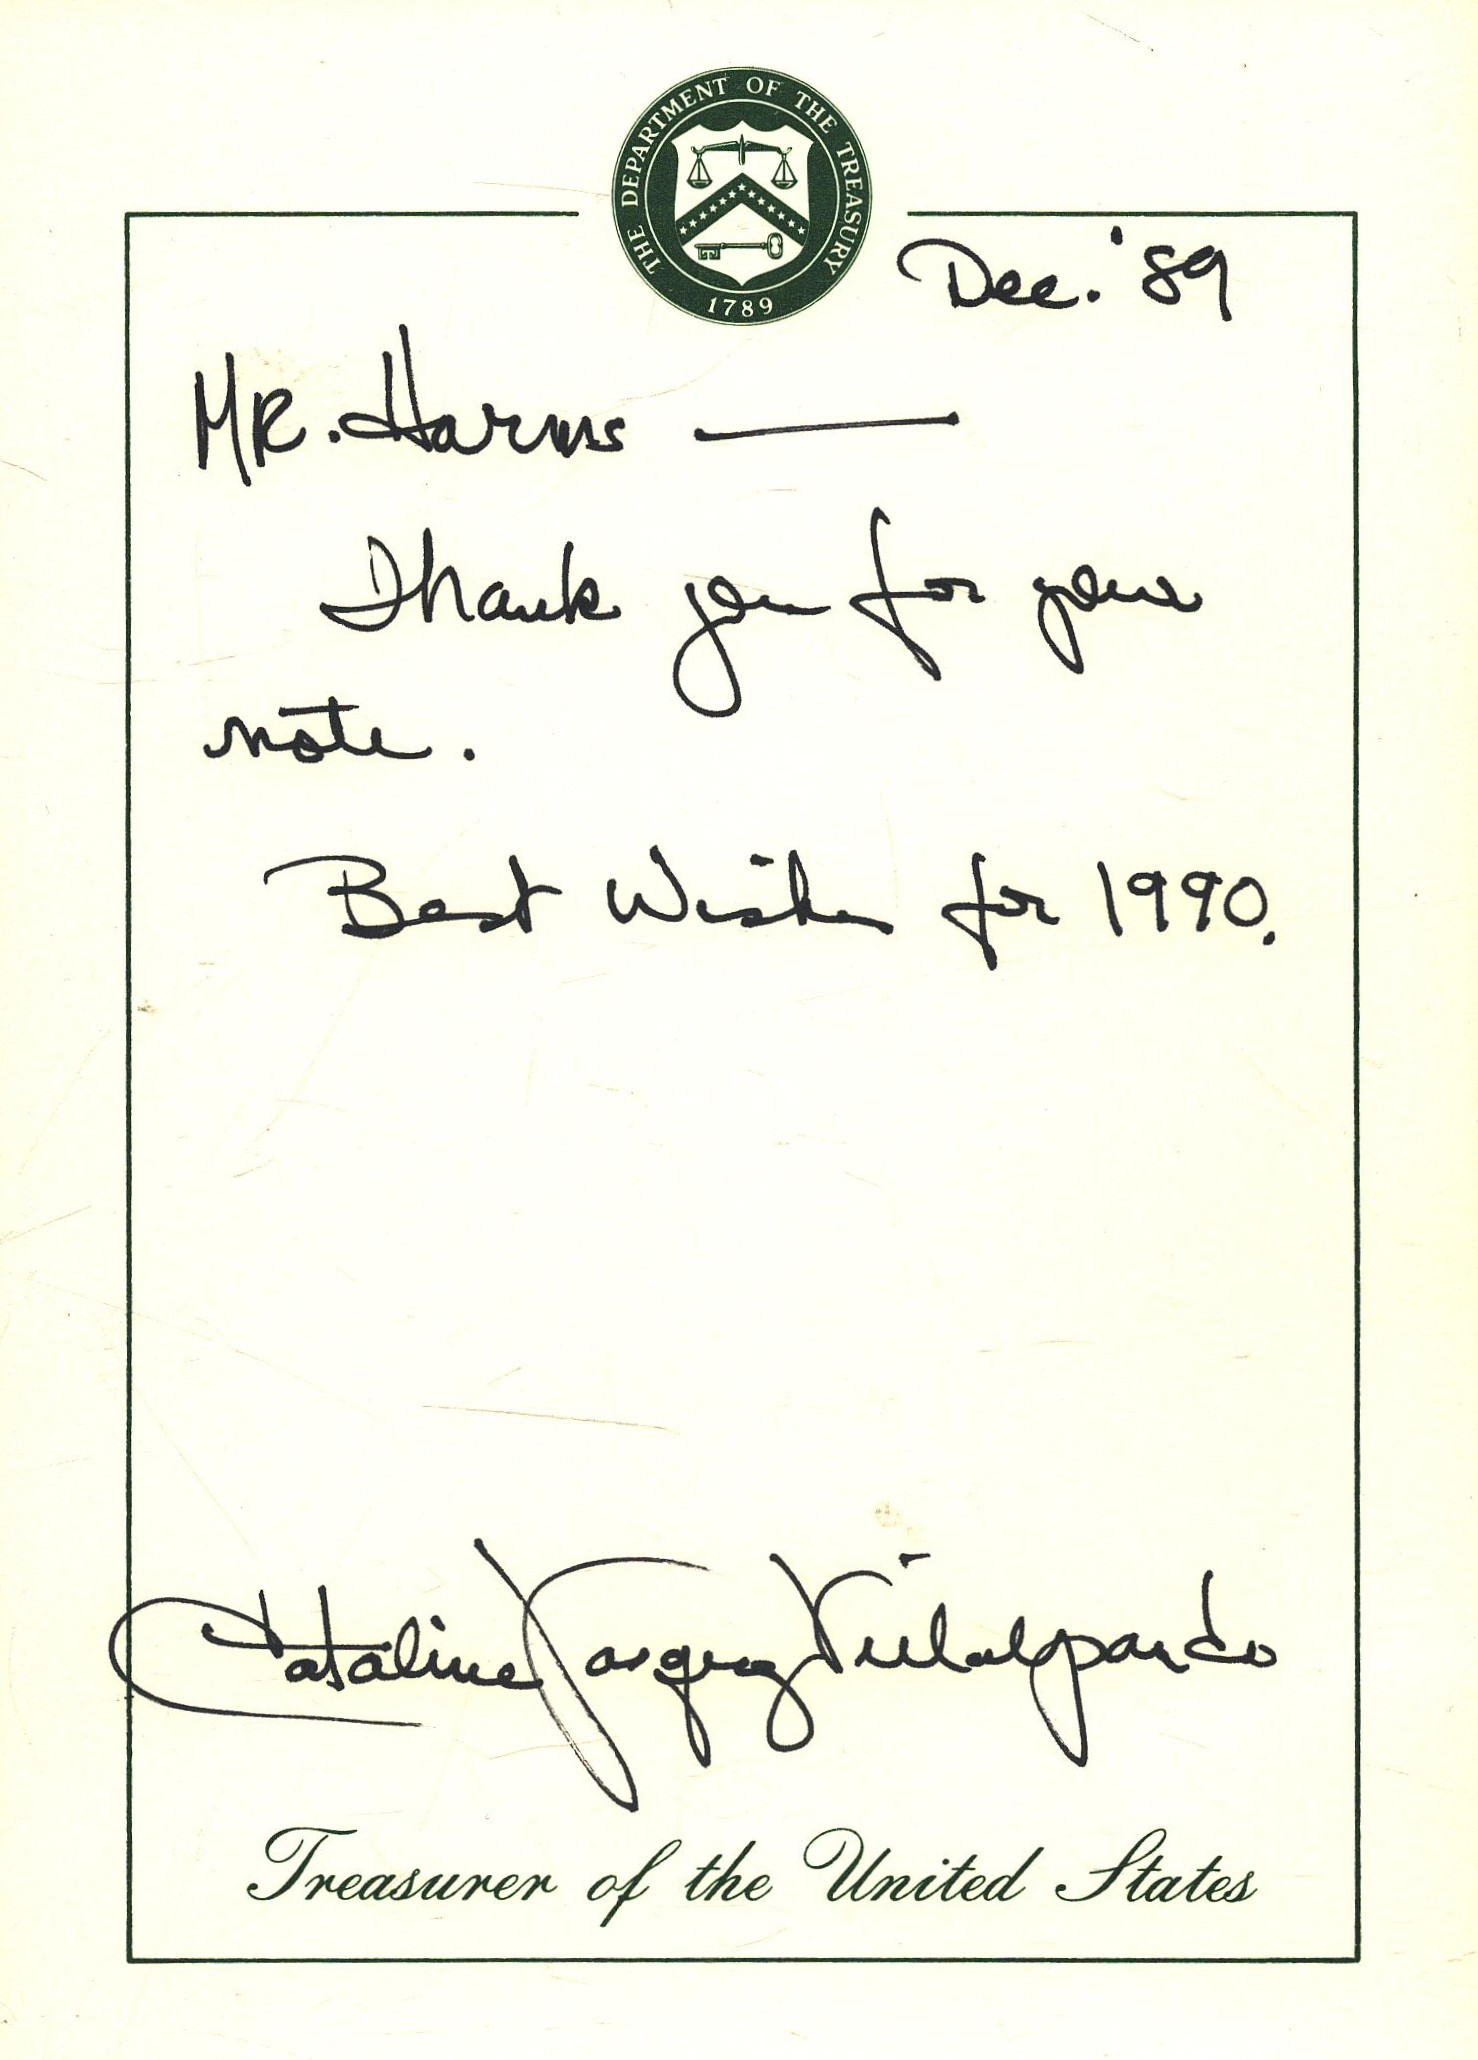 THE DEPARTMENT OF THE TREASURY
1789
Dec. '89
MR. Harms —
Thank you for your
note.
Best Wishes for 1990.
Catalina Vasquez Villalpando
Treasurer of the United States